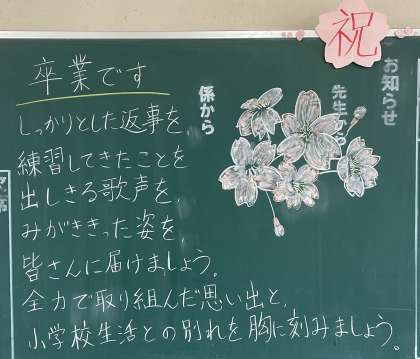 祝
お知らせ
先生から
係から
卒業です
しっかりとした返事を、
練習してきたことを
出しきる歌声を、
みがききった姿を、
皆さんに届けましょう。
全力で取り組んだ思い出と、
小学校生活との別れを胸に刻みましょう。